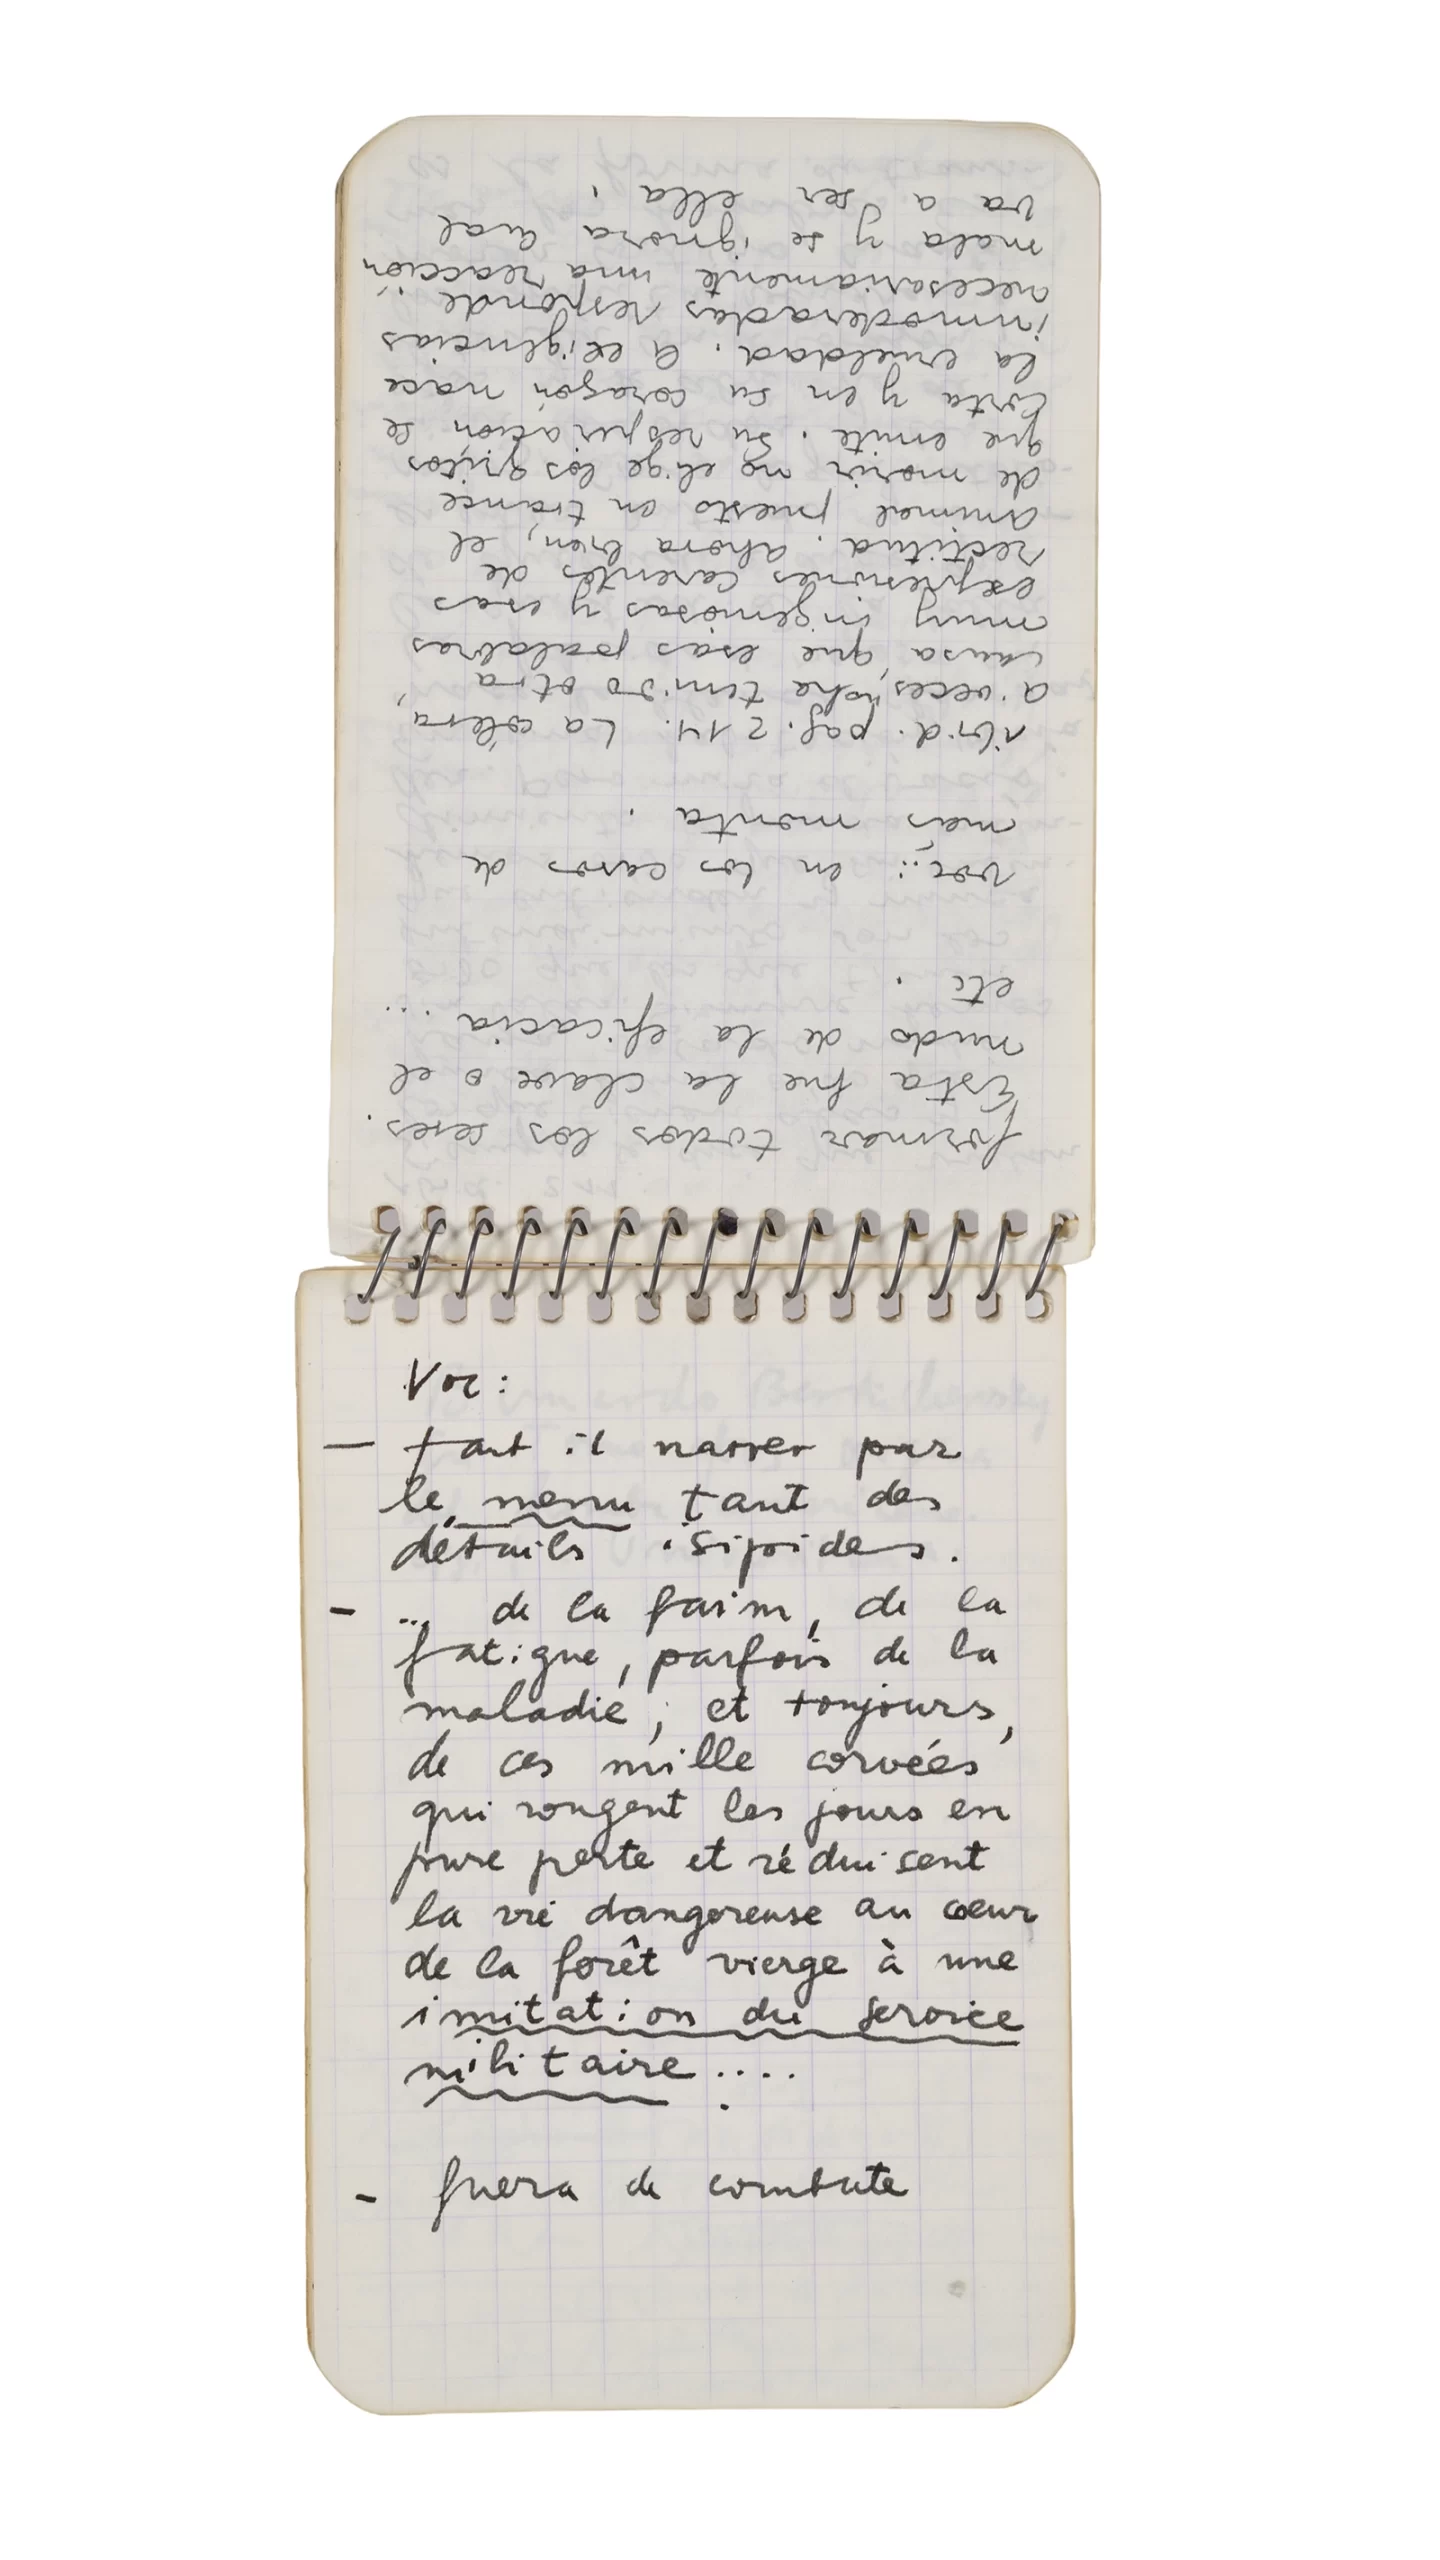 formar todos los seres.
Esta fue la clave o el
nudo de la eficacia ...
etc.
voc: en los casos de
más monta.
ibid. pag. 214. La cólera,
a veces, "ha tenido otra
causa que esas palabras
muy ingeniosas y esas
expresiones carentes de
rectitud. ahora bien, el
animal puesto en trance
de morir no elige los gritos
que emite. Su respiración se
corta y en su corazón nace
la crueldad. A exigencias
inmoderadas responde
necesariamente una reacción
mala y se ignora cual
va a ser ella.
Voc:
— faut il narrer par
le menu tant des
détails isipides.
- ... de la faim, de la
fatigue, parfois de la
maladie; et toujours,
de ces mille corvées
qui rongent les jours en
pure perte et réduisent
la vie dangereuse au cœur
de la forêt vierge à une
imitation du service
militaire....
- fuera de combate